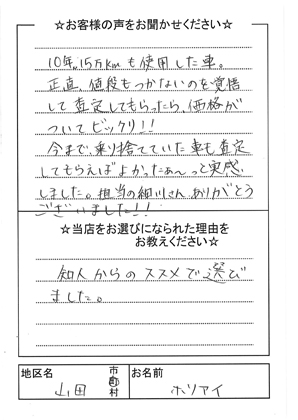 ☆お客様の声をお聞かせください☆
10年、15万kmも使用した車。
正直、値段もつかないのを覚悟
して査定してもらったら、価格が
ついてビックリ!!
今まで、乗り捨てていた車も査定
してもらえばよかったぁ~っと実感
しました。担当の細川さん、ありがとう
ございました!!
☆当店をお選びになられた理由を
お教えください☆
知人からのススメで選び
ました。
地区名
山田
市町村
お名前
ホソアイ